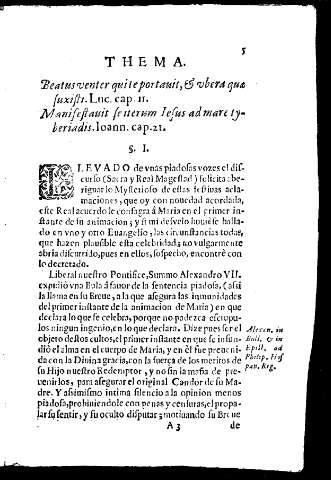 5
THEMA.
Beatus venter qui te portauit, & vbera quæ
suxisti. Luc. cap. 11.
Manifestauit se iterum Iesus ad mare ty-
beriadis. Ioann. cap. 21.
§. I.
LLEVADO de vnas piadosas vozes el dis-
curso (Sacra y Real Magestad) solicita abe-
riguar lo Mysterioso de estas festiuas acla-
maciones, que oy con nouedad acordada,
este Real acuerdo le consagra á Maria en el primer ins-
tante de su animacion; y si mi desvelo huuiesse halla-
do en vno y otro Euangelio, las circunstancias todas,
que hazen plausible esta celebridad; no vulgarmente
abria discurrido, pues en ellos, sospecho, encontrè con
lo decretado.
Liberal nuestro Pontifice, Summo Alexandro VII.
expidiò vna Bula á fauor de la sentencia piadosa, (assi
la llama en su Breue, a la que asegura las inmunidades
del primer instante de la animacion de Maria) en que
declara lo que se celebra, porque no padezca escrupu-
los ningun ingenio, en lo que declara. Dize pues ser el
objeto destos cultos, el primer instante en que se infun-
diò el alma en el cuerpo de Maria, y en èl fue preueni-
da con la Diuina gracia, con la fuerza de los meritos de
su Hijo nuestro Redemptor, y no sin la mafia de pre-
venirlos, para asegurar el original Candor de su Ma-
dre. Y assimismo intima silencio a la opinion menos
piadosa, prohiuiendole con penas y censuras, el propa-
lar su sentir, y su oculto disputar; motiuando su Breue
Alexan. in
Bull. & in
Epist. ad
Philip.
pan. Reg.
A 3
de